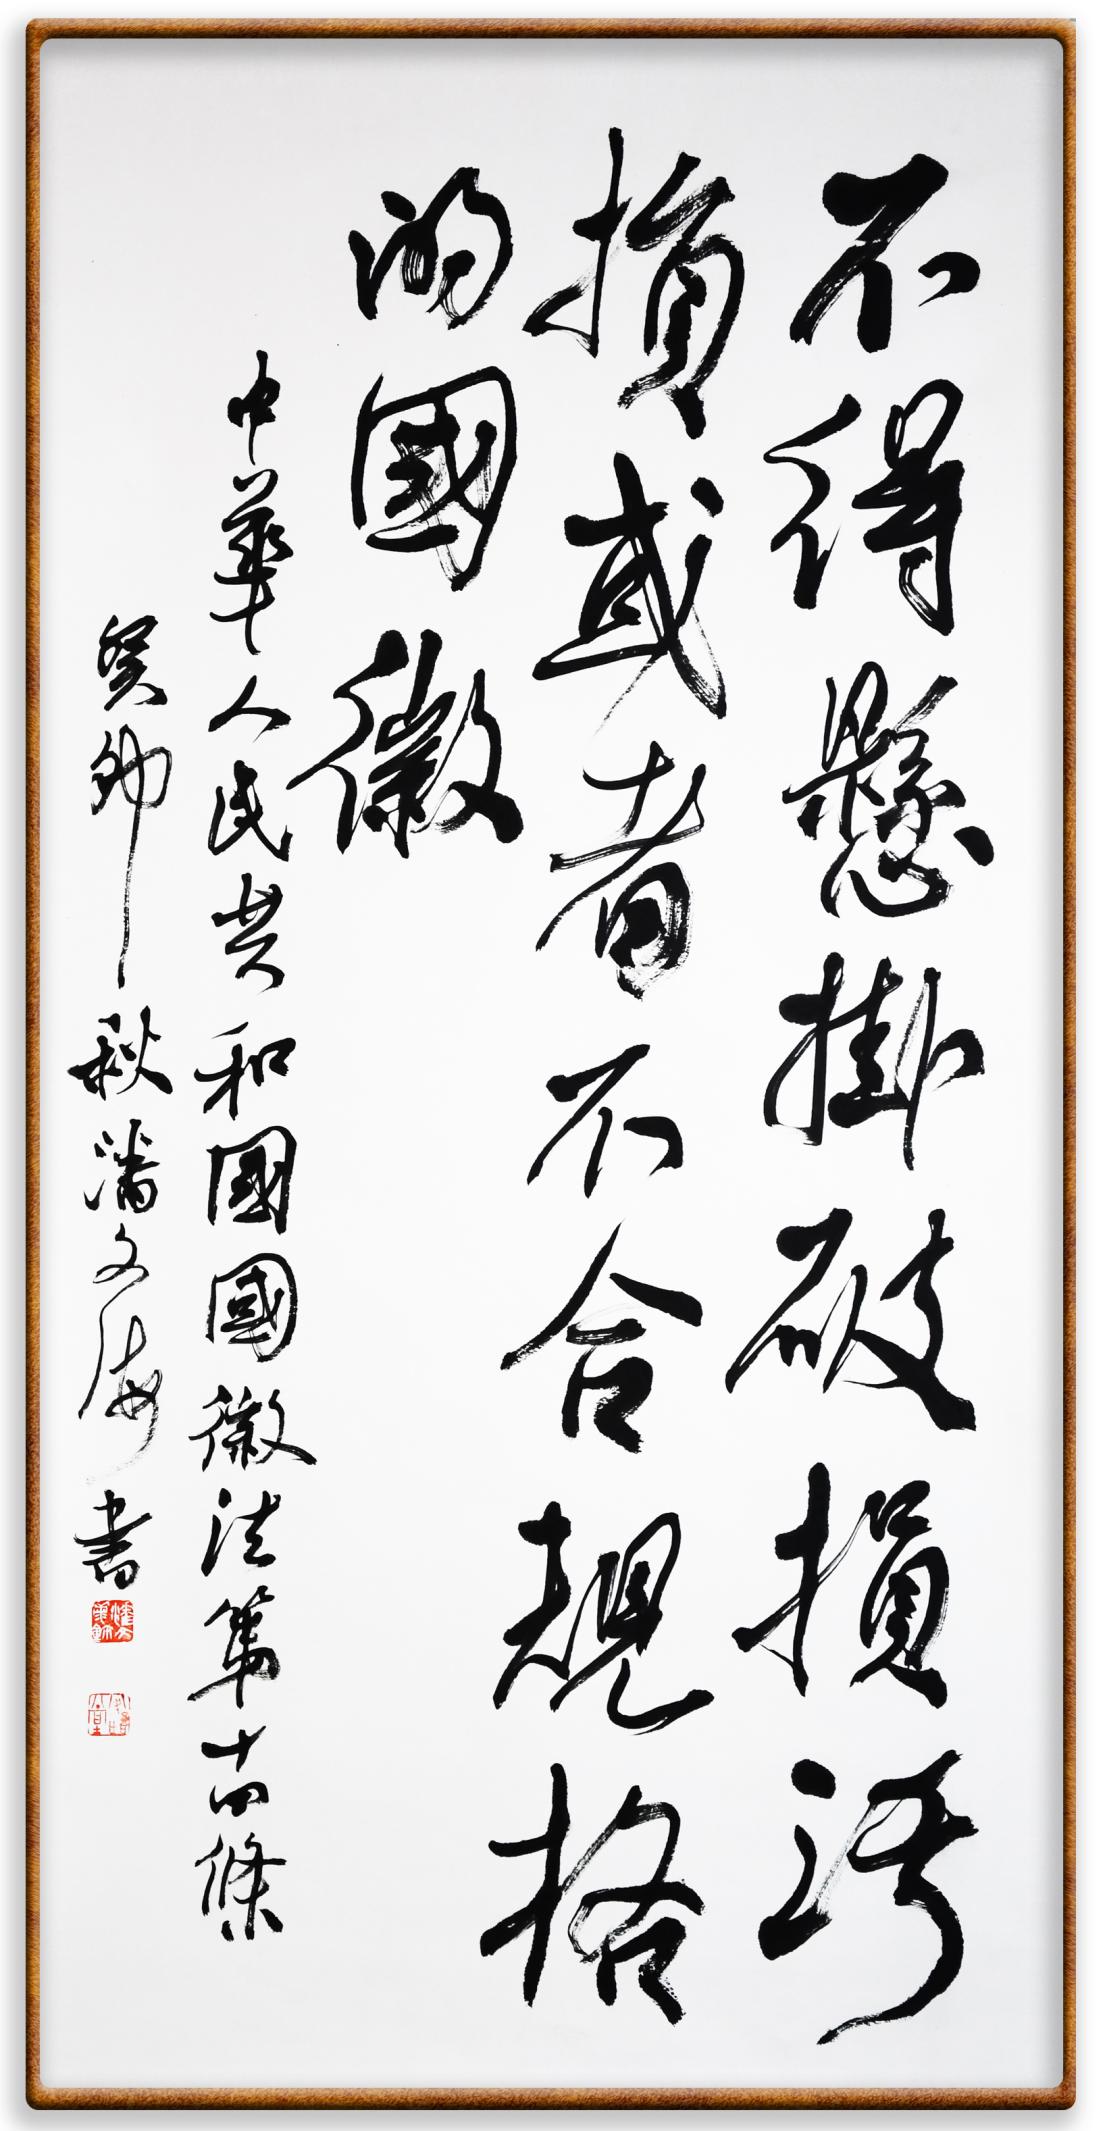 不得懸掛破損污
損或者不合規格
的國徽
中華人民共和國國徽法第十四條
癸卯秋潘文海書